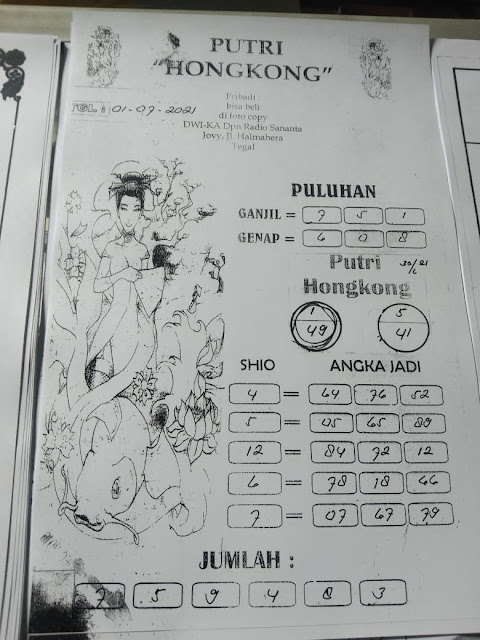 PUTRI
"HONGKONG"
Pribadi :
bisa beli
di foto copy
DWI-KA Dpn Radio Sananta
Jovy, Jl. Halmahera
Tegal
TGL : 01-07-2021
PULUHAN
GANJIL = 7 5 1
GENAP = 6 0 8
Putri
Hongkong
1 5
49 41
SHIO ANGKA JADI
4 = 64 76 52
5 = 05 65 89
12 = 84 72 12
6 = 78 18 66
7 = 07 67 79
JUMLAH :
7 5 9 4 8 3